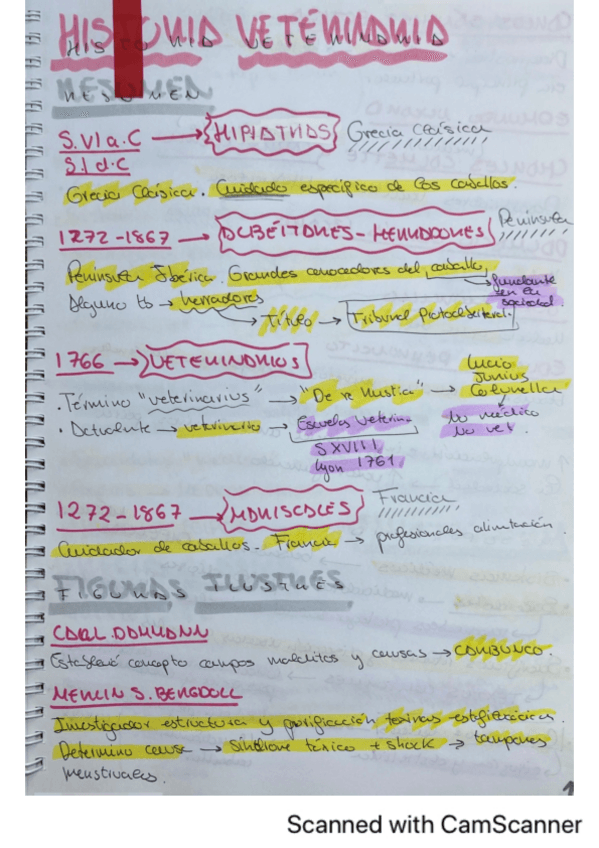 HISTORIA VETERINARIA
RESUMEN
S.VI a.C → HIPIATRAS Grecia Clásica
S.I d.C
Grecia Clásica. Cuidado específico de los caballos.
1272-1867 → ALBÉITARES - HERRADORES Península
Península Ibérica. Grandes conocedores del caballo
fundamental en la sociedad.
Alguno to → herradores
→ Título → Tribunal Protoalbeiterat.
1766 → VETERINARIOS
. Término "veterinarius" → "De re Rustica" → Lucio Junius Columella
No médico
No vet.
. Actualmente → veterinario → Escuelas Veterin.
S XVIII
Lyon 1761
1272-1867 → MARISCALES Francia
Cuidador de caballos. Francia → profesionales alimentación.
FIGURAS ILUSTRES
CARL DAMMANN
Estableció concepto campos malditos y causas → CARBUNCO.
MERLIN S. BERGDOLL
Investigador estructura y purificación toxinas estafilocócicas.
Determino causa → Síndrome tóxico + shock → tampones
menstruales.
1
Scanned with CamScanner